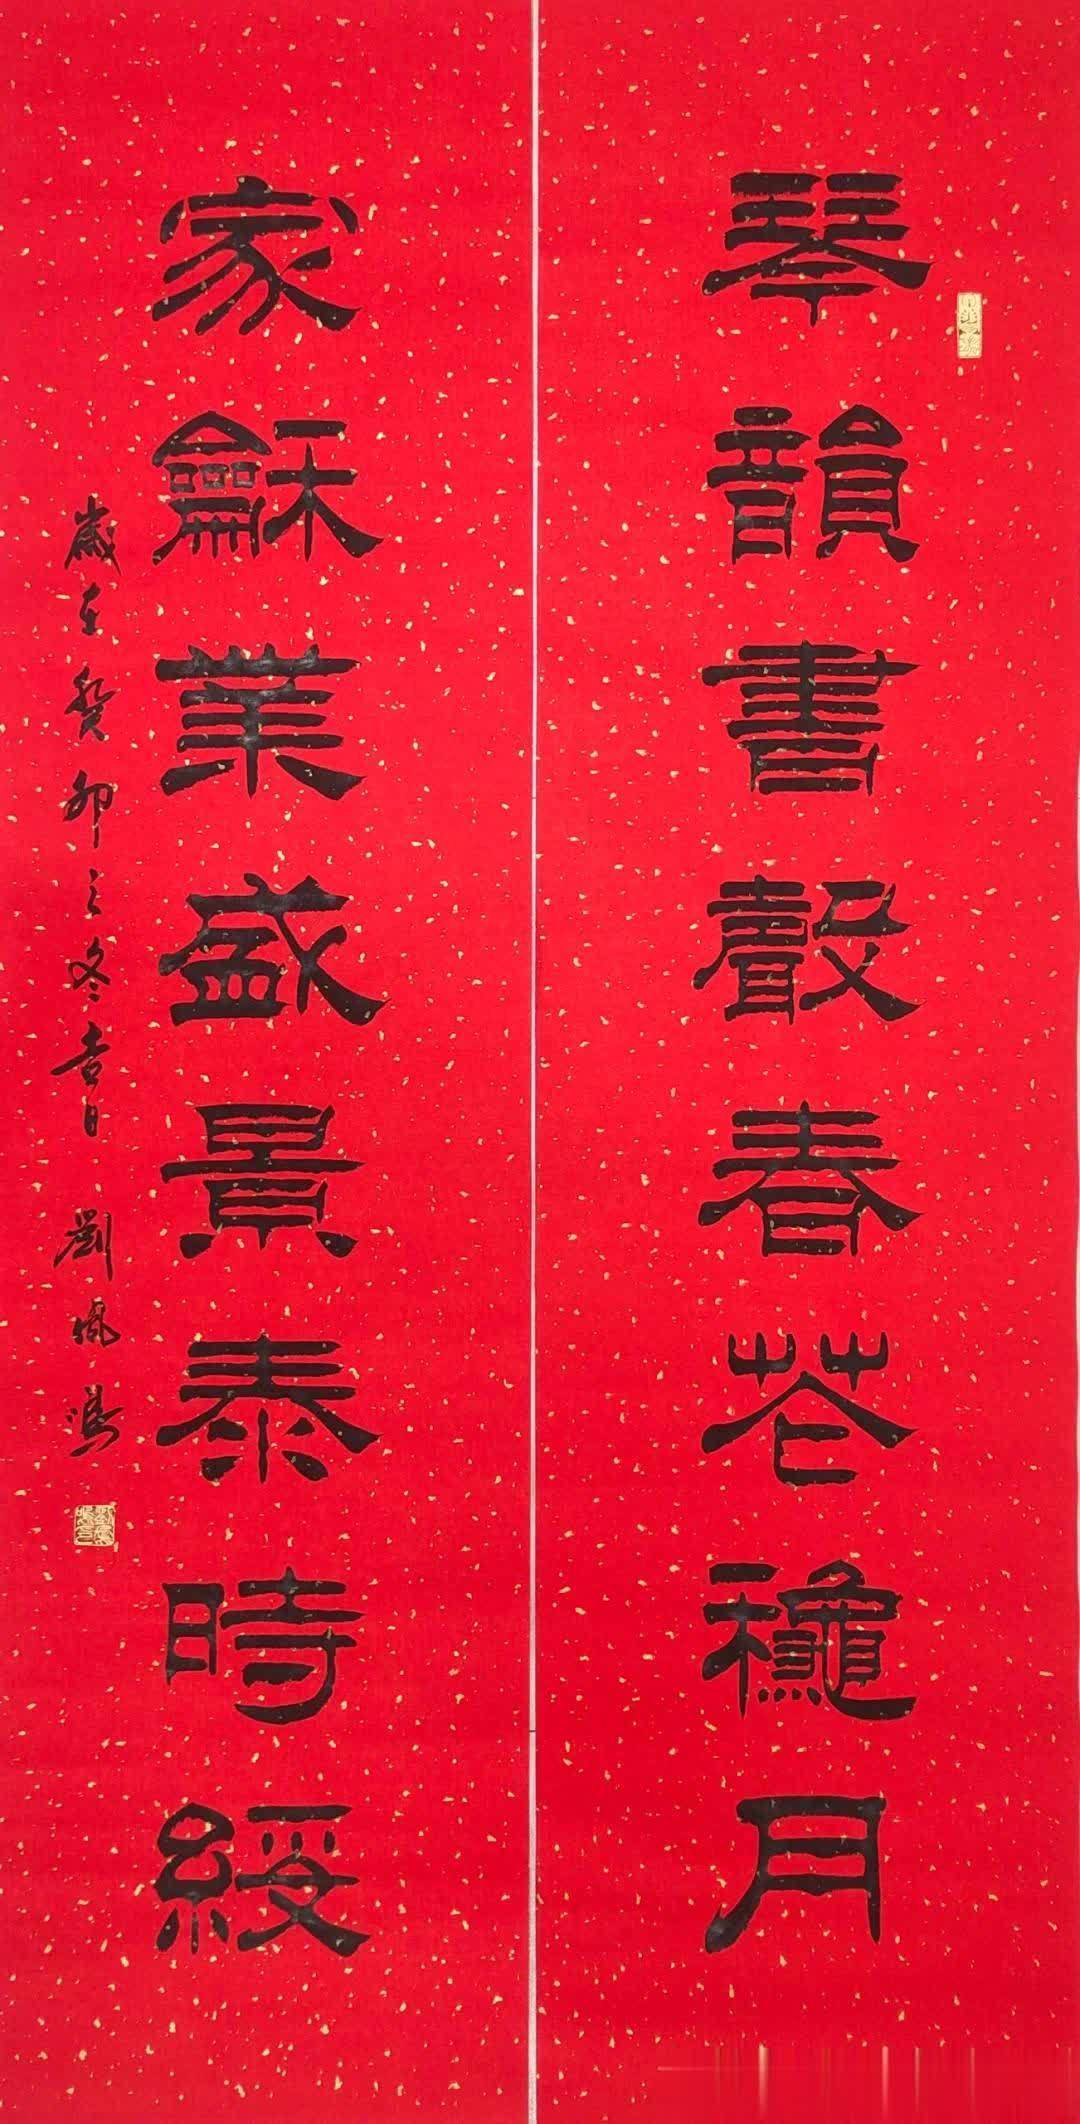 琴韻書聲春花穐月
家龢業盛景泰時綏
歲在癸卯之冬吉日 劉佩鴻